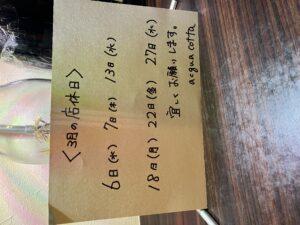 〈3月の店休日〉
6日(水) 7日(木) 13日(水)
18日(月) 22日(金) 27日(水)
宜しくお願いします。
acqua cotta